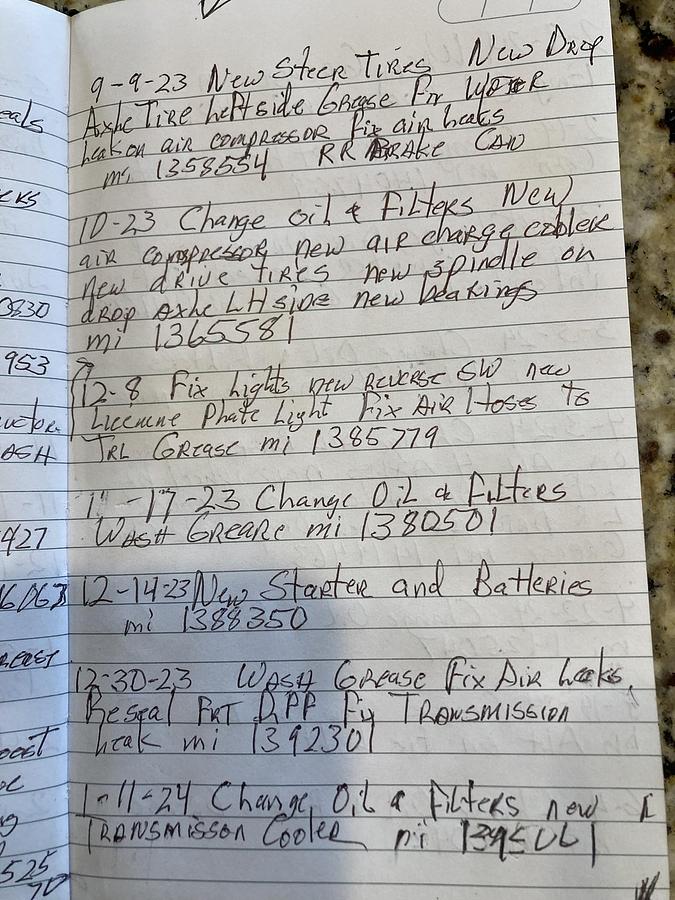 9-9-23 New Steer Tires New Drop
Axle Tire Left side Grease Fix Water
Leak on air compressor Fix air Leaks
mi 1358554 RR BRAKE CAN
10-23 Change oil & Filters New
air compressor new air charge cooler
new drive tires new spindle on
drop axle LH side new bearings
mi 1365581
12-8 Fix Lights new reverse SW new
Licenune Plate Light Fix Air Hoses to
TRL Grease mi 1385779
11-17-23 Change Oil & Filters
Wash Grease mi 1380501
12-14-23 New Starter and Batteries
mi 1388350
12-30-23 Wash Grease Fix Air Leaks
Reseal FRT DPF Fix Transmission
Leak mi 1392301
1-11-24 Change Oil & Filters new
Transmisson Cooler mi
eals
0830
953
ASH
427
525
70